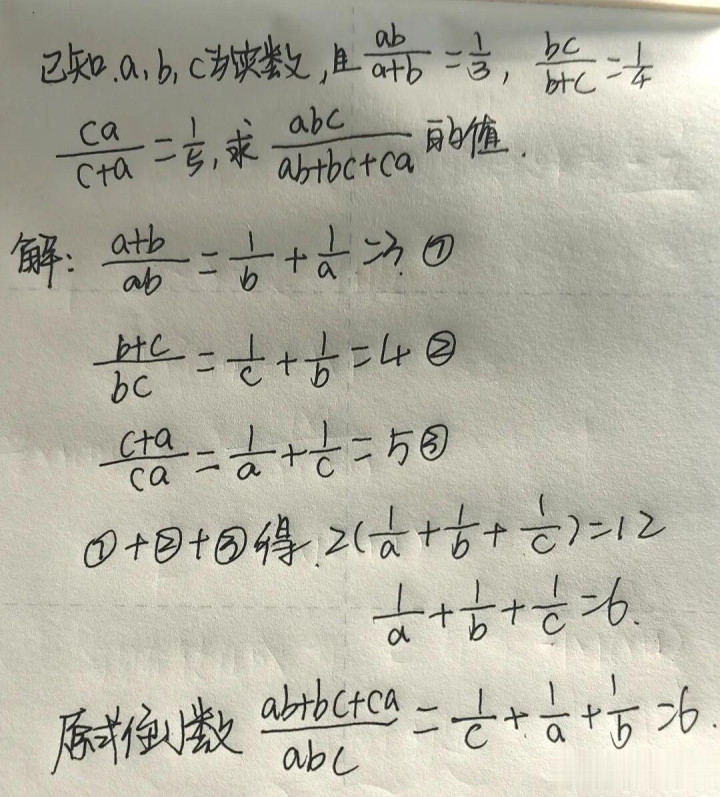 已知.a,b,c为实数,且 ab/(a+b) = 1/3, bc/(b+c) = 1/4
ca/(c+a) = 1/5,求 abc/(ab+bc+ca) 的值.
解: (a+b)/ab = 1/b + 1/a = 3. ①
(b+c)/bc = 1/c + 1/b = 4 ②
(c+a)/ca = 1/a + 1/c = 5 ③
①+②+③得.2(1/a + 1/b + 1/c) = 12
1/a + 1/b + 1/c = 6.
原式倒数 (ab+bc+ca)/abc = 1/c + 1/a + 1/b = 6.